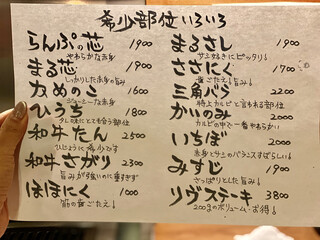 希少部位いろいろ
らんぷの芯 1900
やわらかな赤身
まる芯 1900
しっかりした赤身の旨み
かめのこ 1600
ジューシーな赤身
ひうち 1800
タレの味にとても合う部位
和牛たん 2500
ひじょうに希少です
和牛さがり 2300
旨みが強いのに重すぎず
ほほにく 1000
筋の歯ごたえ!
まるさし 1900
サシ好きにピッタリ!
ささにく 1700
歯ごたえ旨み!
三角バラ 2200
特上カルビと言われる部位
かいのみ 2000
カルビの中で一番やわらかい
いちぼ 2000
赤身とサシのバランスすばらしい!
みすじ 1900
さっぱりとした旨み!
リヴステーキ 3800
200gのボリューム・お得!